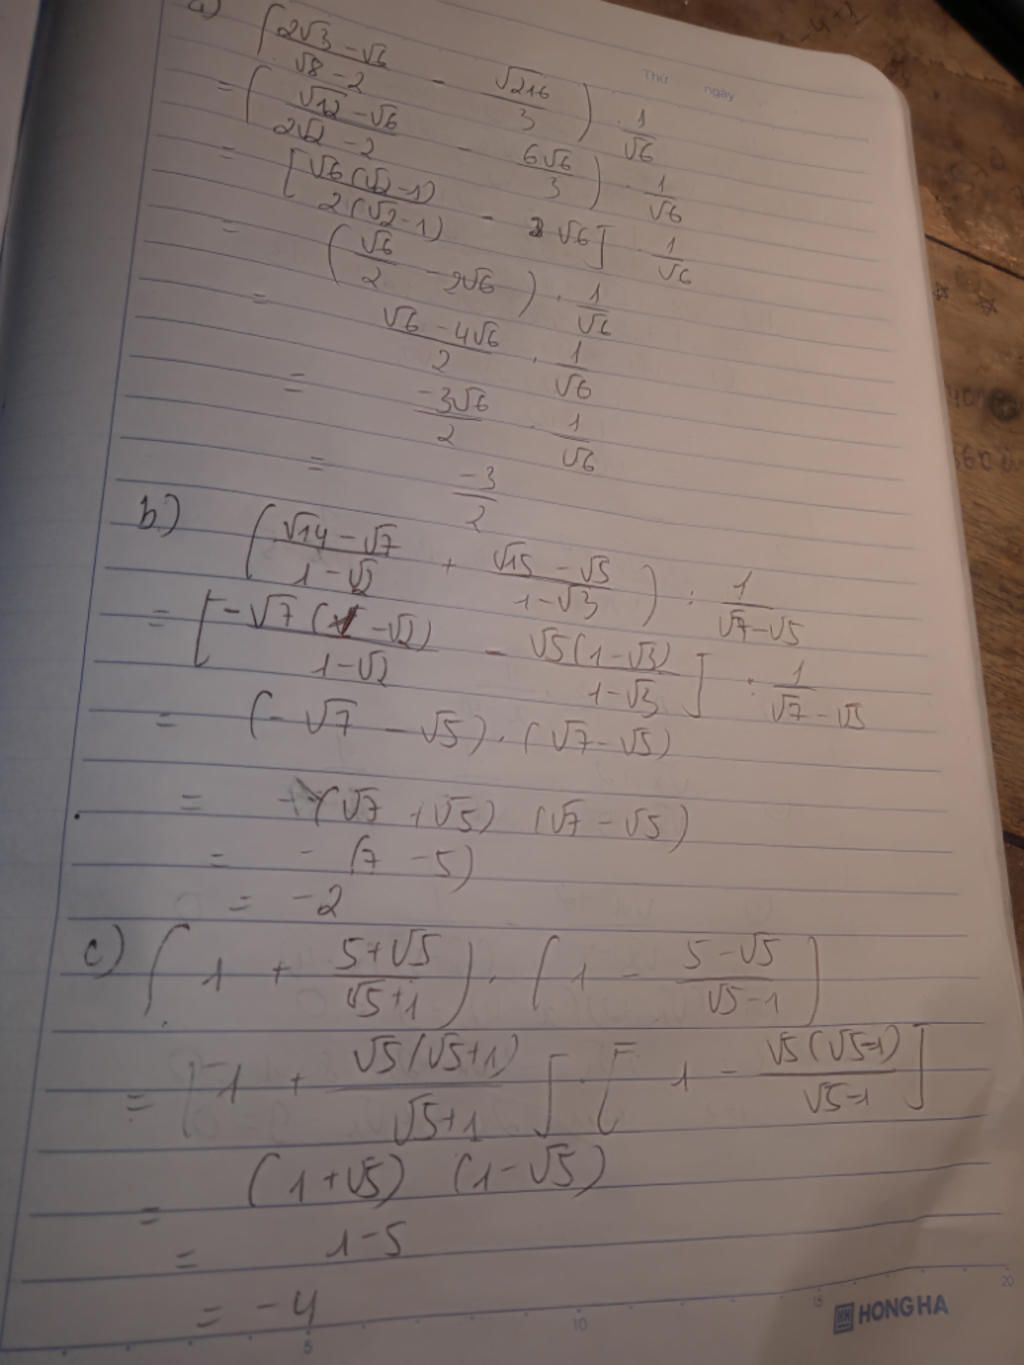 Thứ ngày
a) ((2√3 - √6)/(√8 - 2) - √216/3) · 1/√6
= ((√12 - √6)/(2√2 - 2) - 6√6/3) · 1/√6
= [√6(√2-1)/2(√2-1) - 2√6] · 1/√6
= (√6/2 - 2√6) · 1/√6
= (√6 - 4√6)/2 · 1/√6
= -3√6/2 · 1/√6
= -3/2
b) ((√14 - √7)/(1 - √2) + (√15 - √5)/(1 - √3)) : 1/(√7 - √5)
= [-√7(1 - √2)/(1 - √2) - √5(1 - √3)/(1 - √3)] : 1/(√7 - √5)
= (-√7 - √5) · (√7 - √5)
= -(√7 + √5) (√7 - √5)
= - (7 - 5)
= -2
c) (1 + (5+√5)/(√5+1)) · (1 - (5-√5)/(√5-1))
= [1 + √5(√5+1)/(√5+1)] · [1 - √5(√5-1)/(√5-1)]
= (1+√5) (1-√5)
= 1-5
= -4
5 10 15 20
HONG HA